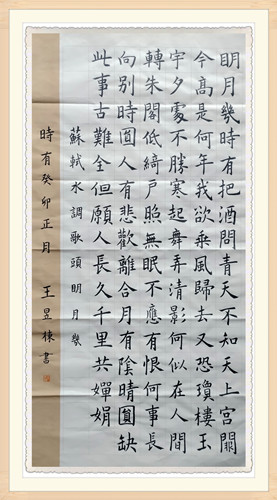 明月幾時有把酒問青天不知天上宮闕
今高是何年我欲乘風歸去又恐瓊樓玉
宇夕處不勝寒起舞弄清影何似在人間
轉朱閣低綺戶照無眠不應有恨何事長
向別時圓人有悲歡離合月有陰晴圓缺
此事古難全但願人長久千里共嬋娟
蘇軾水調歌頭明月幾
時有癸卯正月 王昱棟書